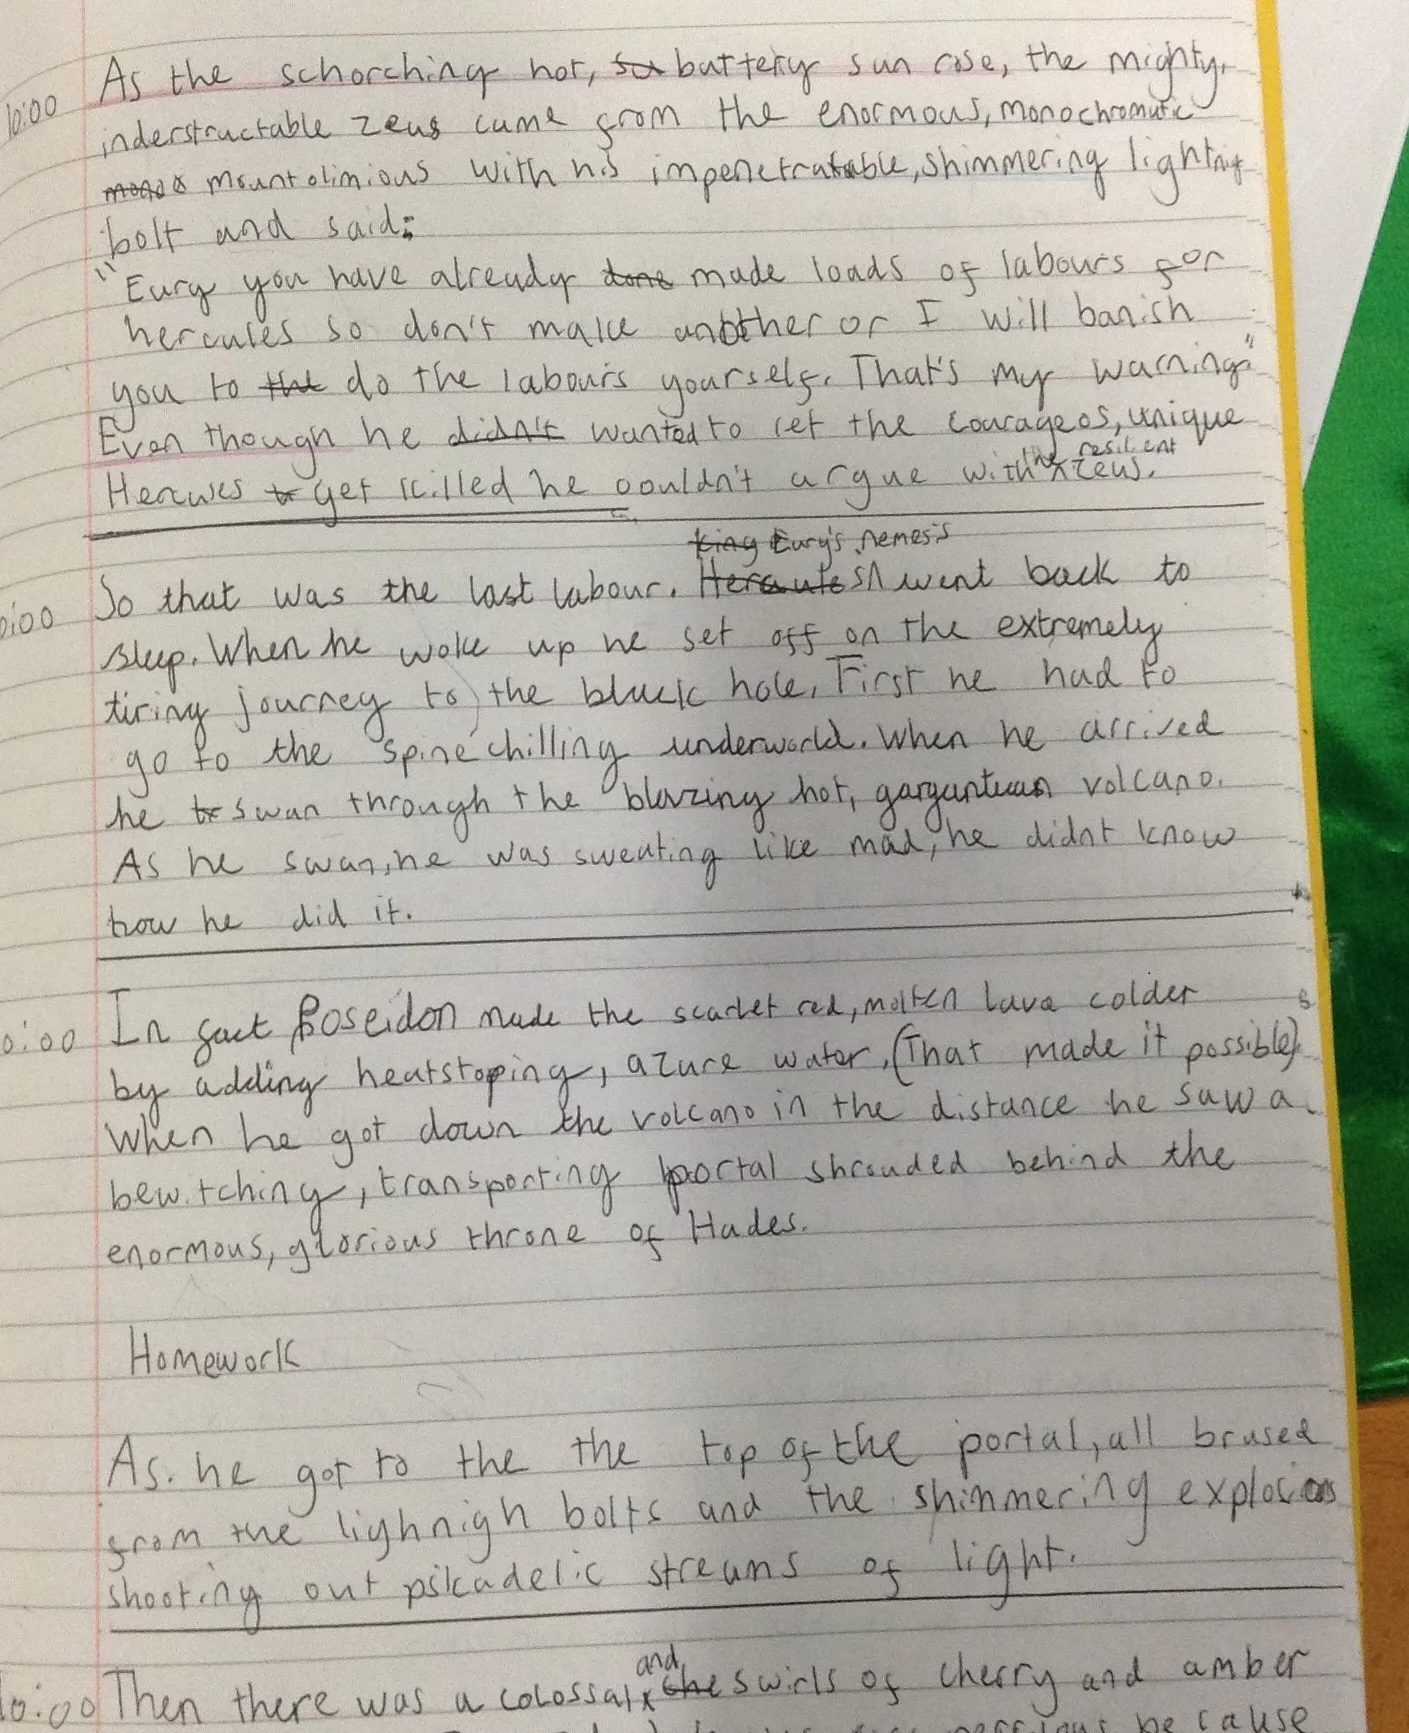 10:00 As the schorching hot, buttery sun rose, the mighty,
inderstructable zeus came from the enormous, monochromatic
mount olimious with his impenetratable, shimmering lightnig
bolt and said:
"Eury you have already done made loads of labours for
hercules so don't make another or I will banish
you to that do the labours yourself. That's my warning."
Even though he didn't wanted to let the courageos, unique
the resilient
Hercules to get killed he couldn't argue with zeus.
King Eury's nemesis
10:00 So that was the last labour. Hercules went back to
sleep. When he woke up he set off on the extremely
tiring journey to the black hole. First he had to
go to the spine chilling underworld. When he arrived
he swan through the blazing hot, gargantuan volcano.
As he swan, he was sweating like mad, he didnt know
how he did it.
10:00 In fact Poseidon made the scarlet red, molten lava colder
by adding heatstopping, azure water. (That made it possible).
When he got down the volcano in the distance he saw a
bewitching, transporting portal shrouded behind the
enormous, glorious throne of Hades.
Homework
As he got to the the top of the portal, all brused
from the lighnigh bolts and the shimmering explocions
shooting out psikadelic streams of light.
and
10:00 Then there was a colossal the swirls of cherry and amber
because